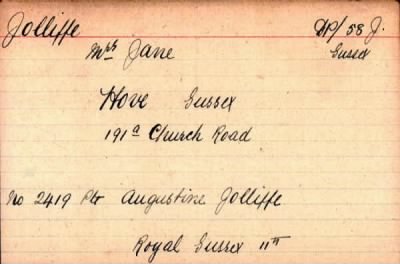 Jolliffe DP/58 J.
Mrs Jane Sussex
Hove Sussex
191a Church Road
No 2419 Pte Augustine Jolliffe
Royal Sussex 11th